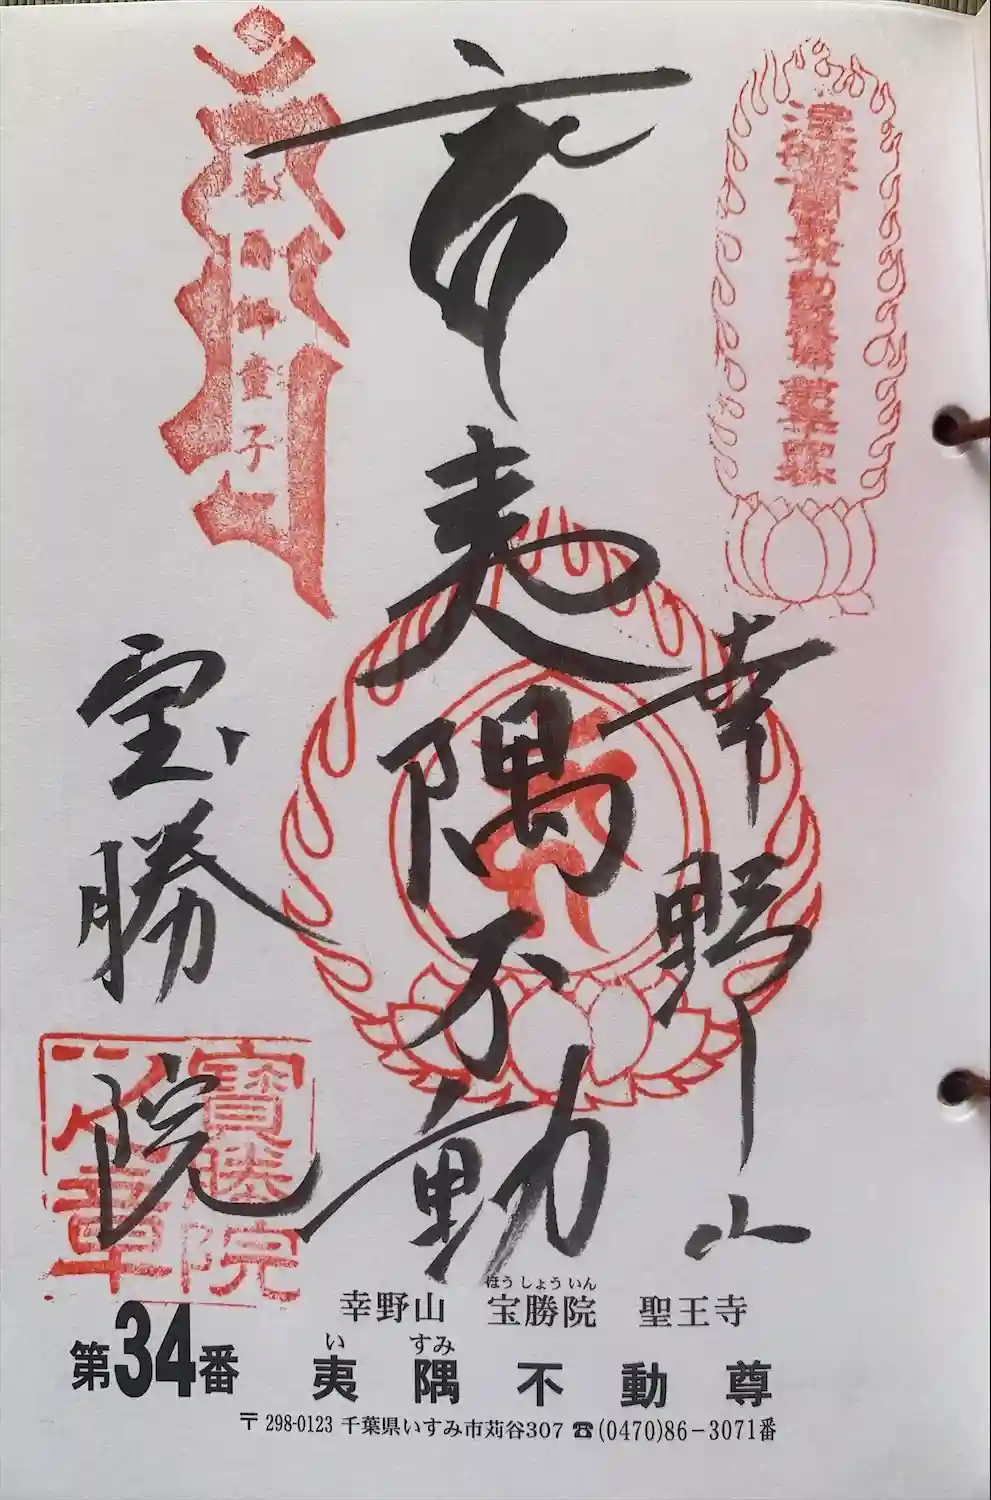 幸野山
夷隅不動
宝勝院
寶勝院
章
童子
幸野山 宝勝院 聖王寺
ほうしょういん
第34番 夷隅不動尊
いすみ
〒298-0123 千葉県いすみ市苅谷307 ☎(0470)86-3071番